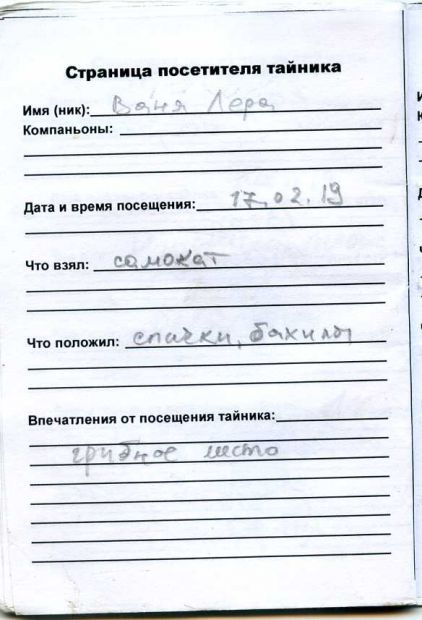 Страница посетителя тайника
Имя (ник): Ваня Лера
Компаньоны:
Дата и время посещения: 17.02.19
Что взял: самокат
Что положил: спички, бахилы
Впечатления от посещения тайника:
грибное место